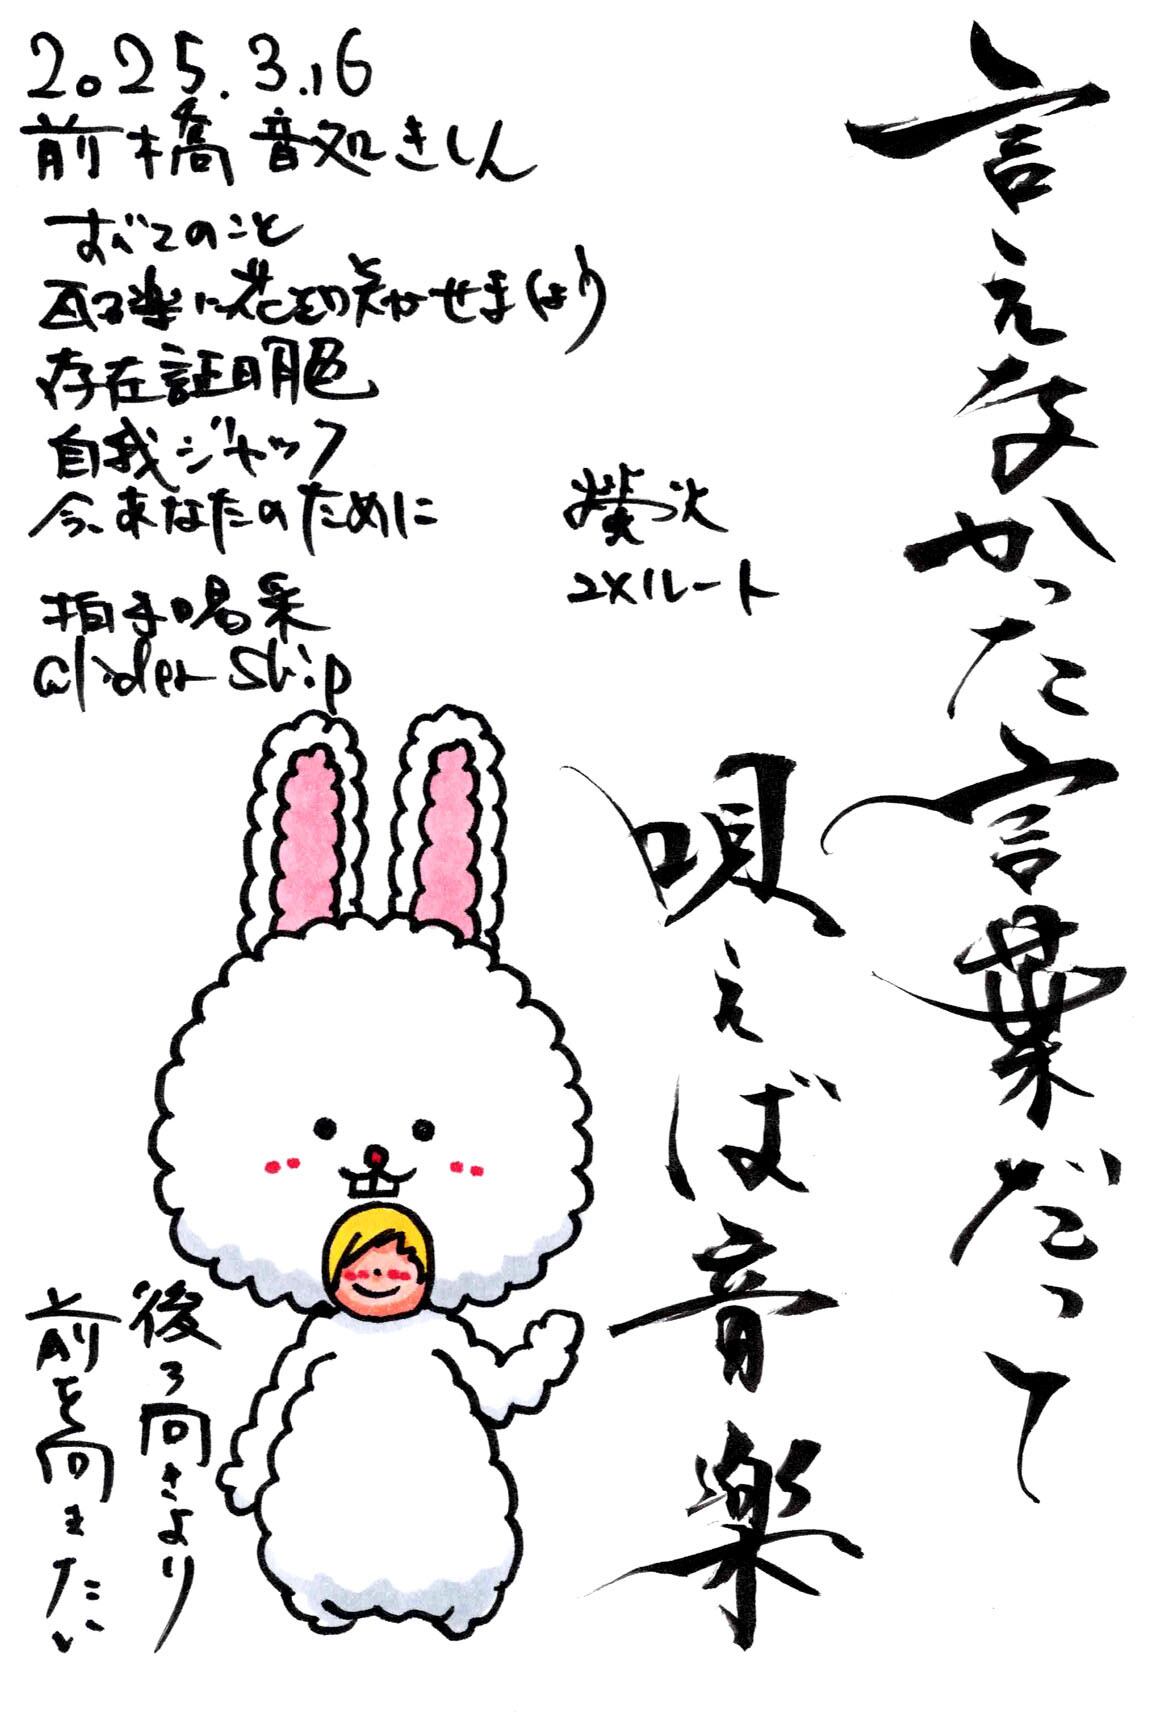 2025.3.16
前橋 音処きしん
すべてのこと
に花を咲かせましょう
存在証明
自我ジャック
今、あなたのために
拍手喝采
Glider Ship
螢火
2×1ルート
言えなかった言葉だって
唄えば音楽
後ろ向きより
前を向きたい